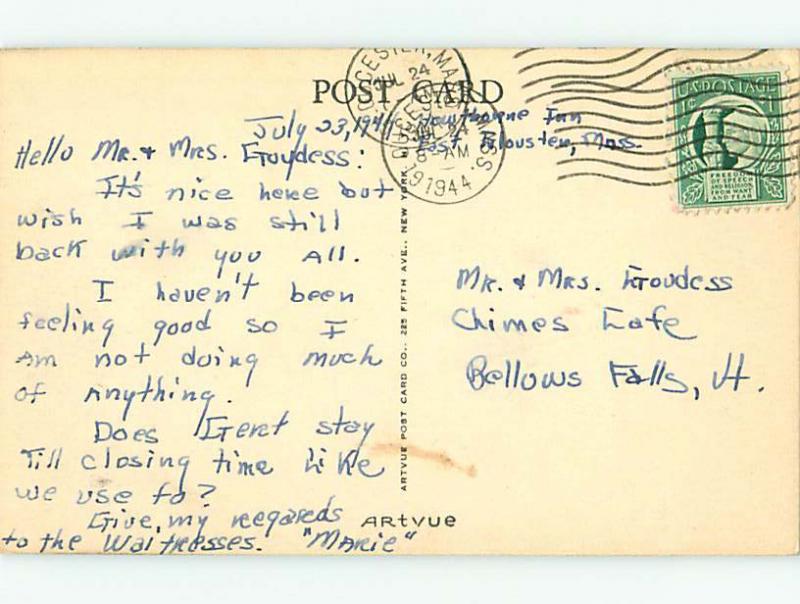 POST CARD
GLOUCESTER, MASS.
JUL 24
8 AM
1944
U.S. POSTAGE
1¢
FREEDOM
OF SPEECH
AND RELIGION,
FROM WANT
AND FEAR
July 23, 1944 Hawthorne Inn
East Glouster, Mass.
Hello Mr. & Mrs. Goudess:
It's nice here but
wish I was still
back with you All.
I haven't been
feeling good so I
Am not doing much
of Anything.
Does Geret stay
Till closing time like
we use to?
Give my regards
to the Waitresses. "Marie"
Mr. & Mrs. Goudess
Chimes Cafe
Bellows Falls, Vt.
ARTVUE POST CARD CO., 225 FIFTH AVE., NEW YORK, N.Y.
ARTVUE